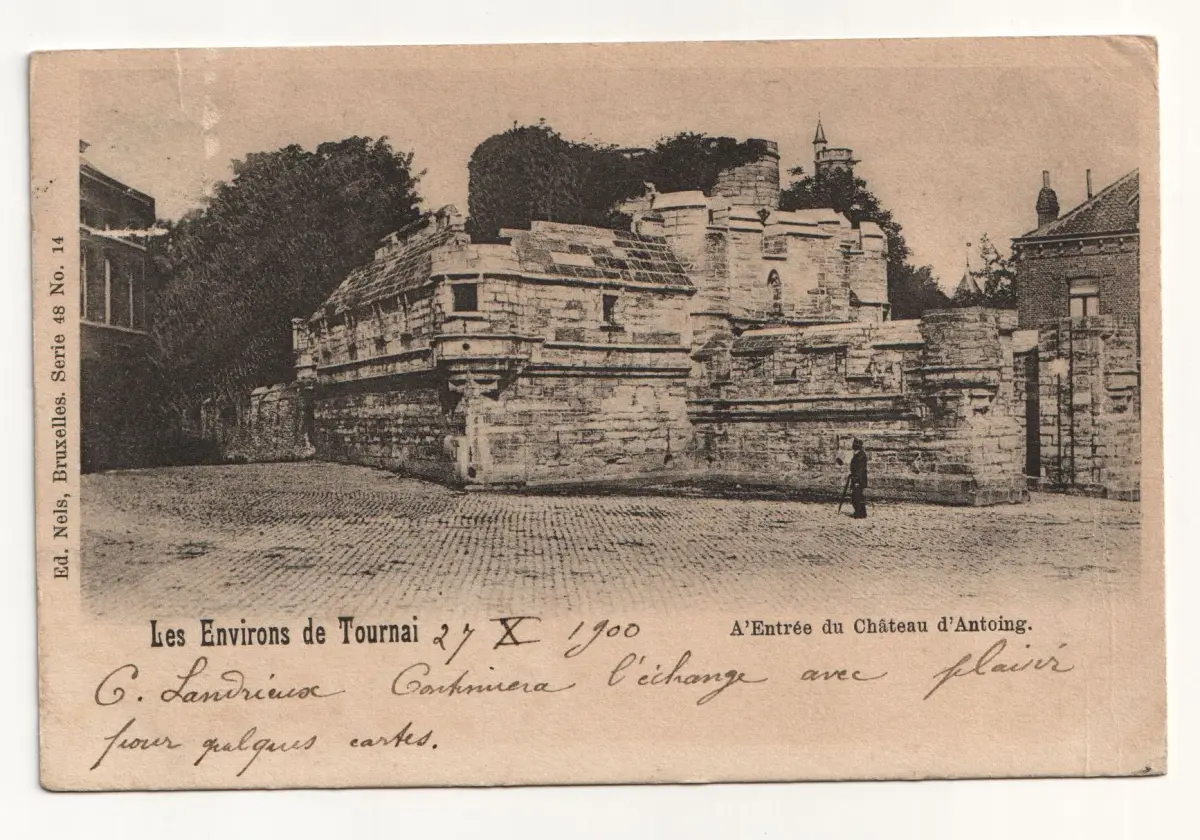 Ed. Nels, Bruxelles. Serie 48 No. 14
Les Environs de Tournai 27 X 1900
A'Entrée du Château d'Antoing.
C. Landrieux Continuera l'échange avec plaisir
pour quelques cartes.